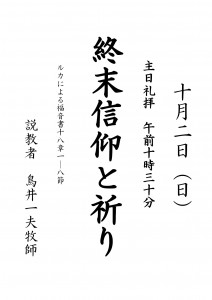 十月二日（日）
主日礼拝　午前十時三十分
終末信仰と祈り
ルカによる福音書十八章一―八節
説教者　鳥井一夫牧師